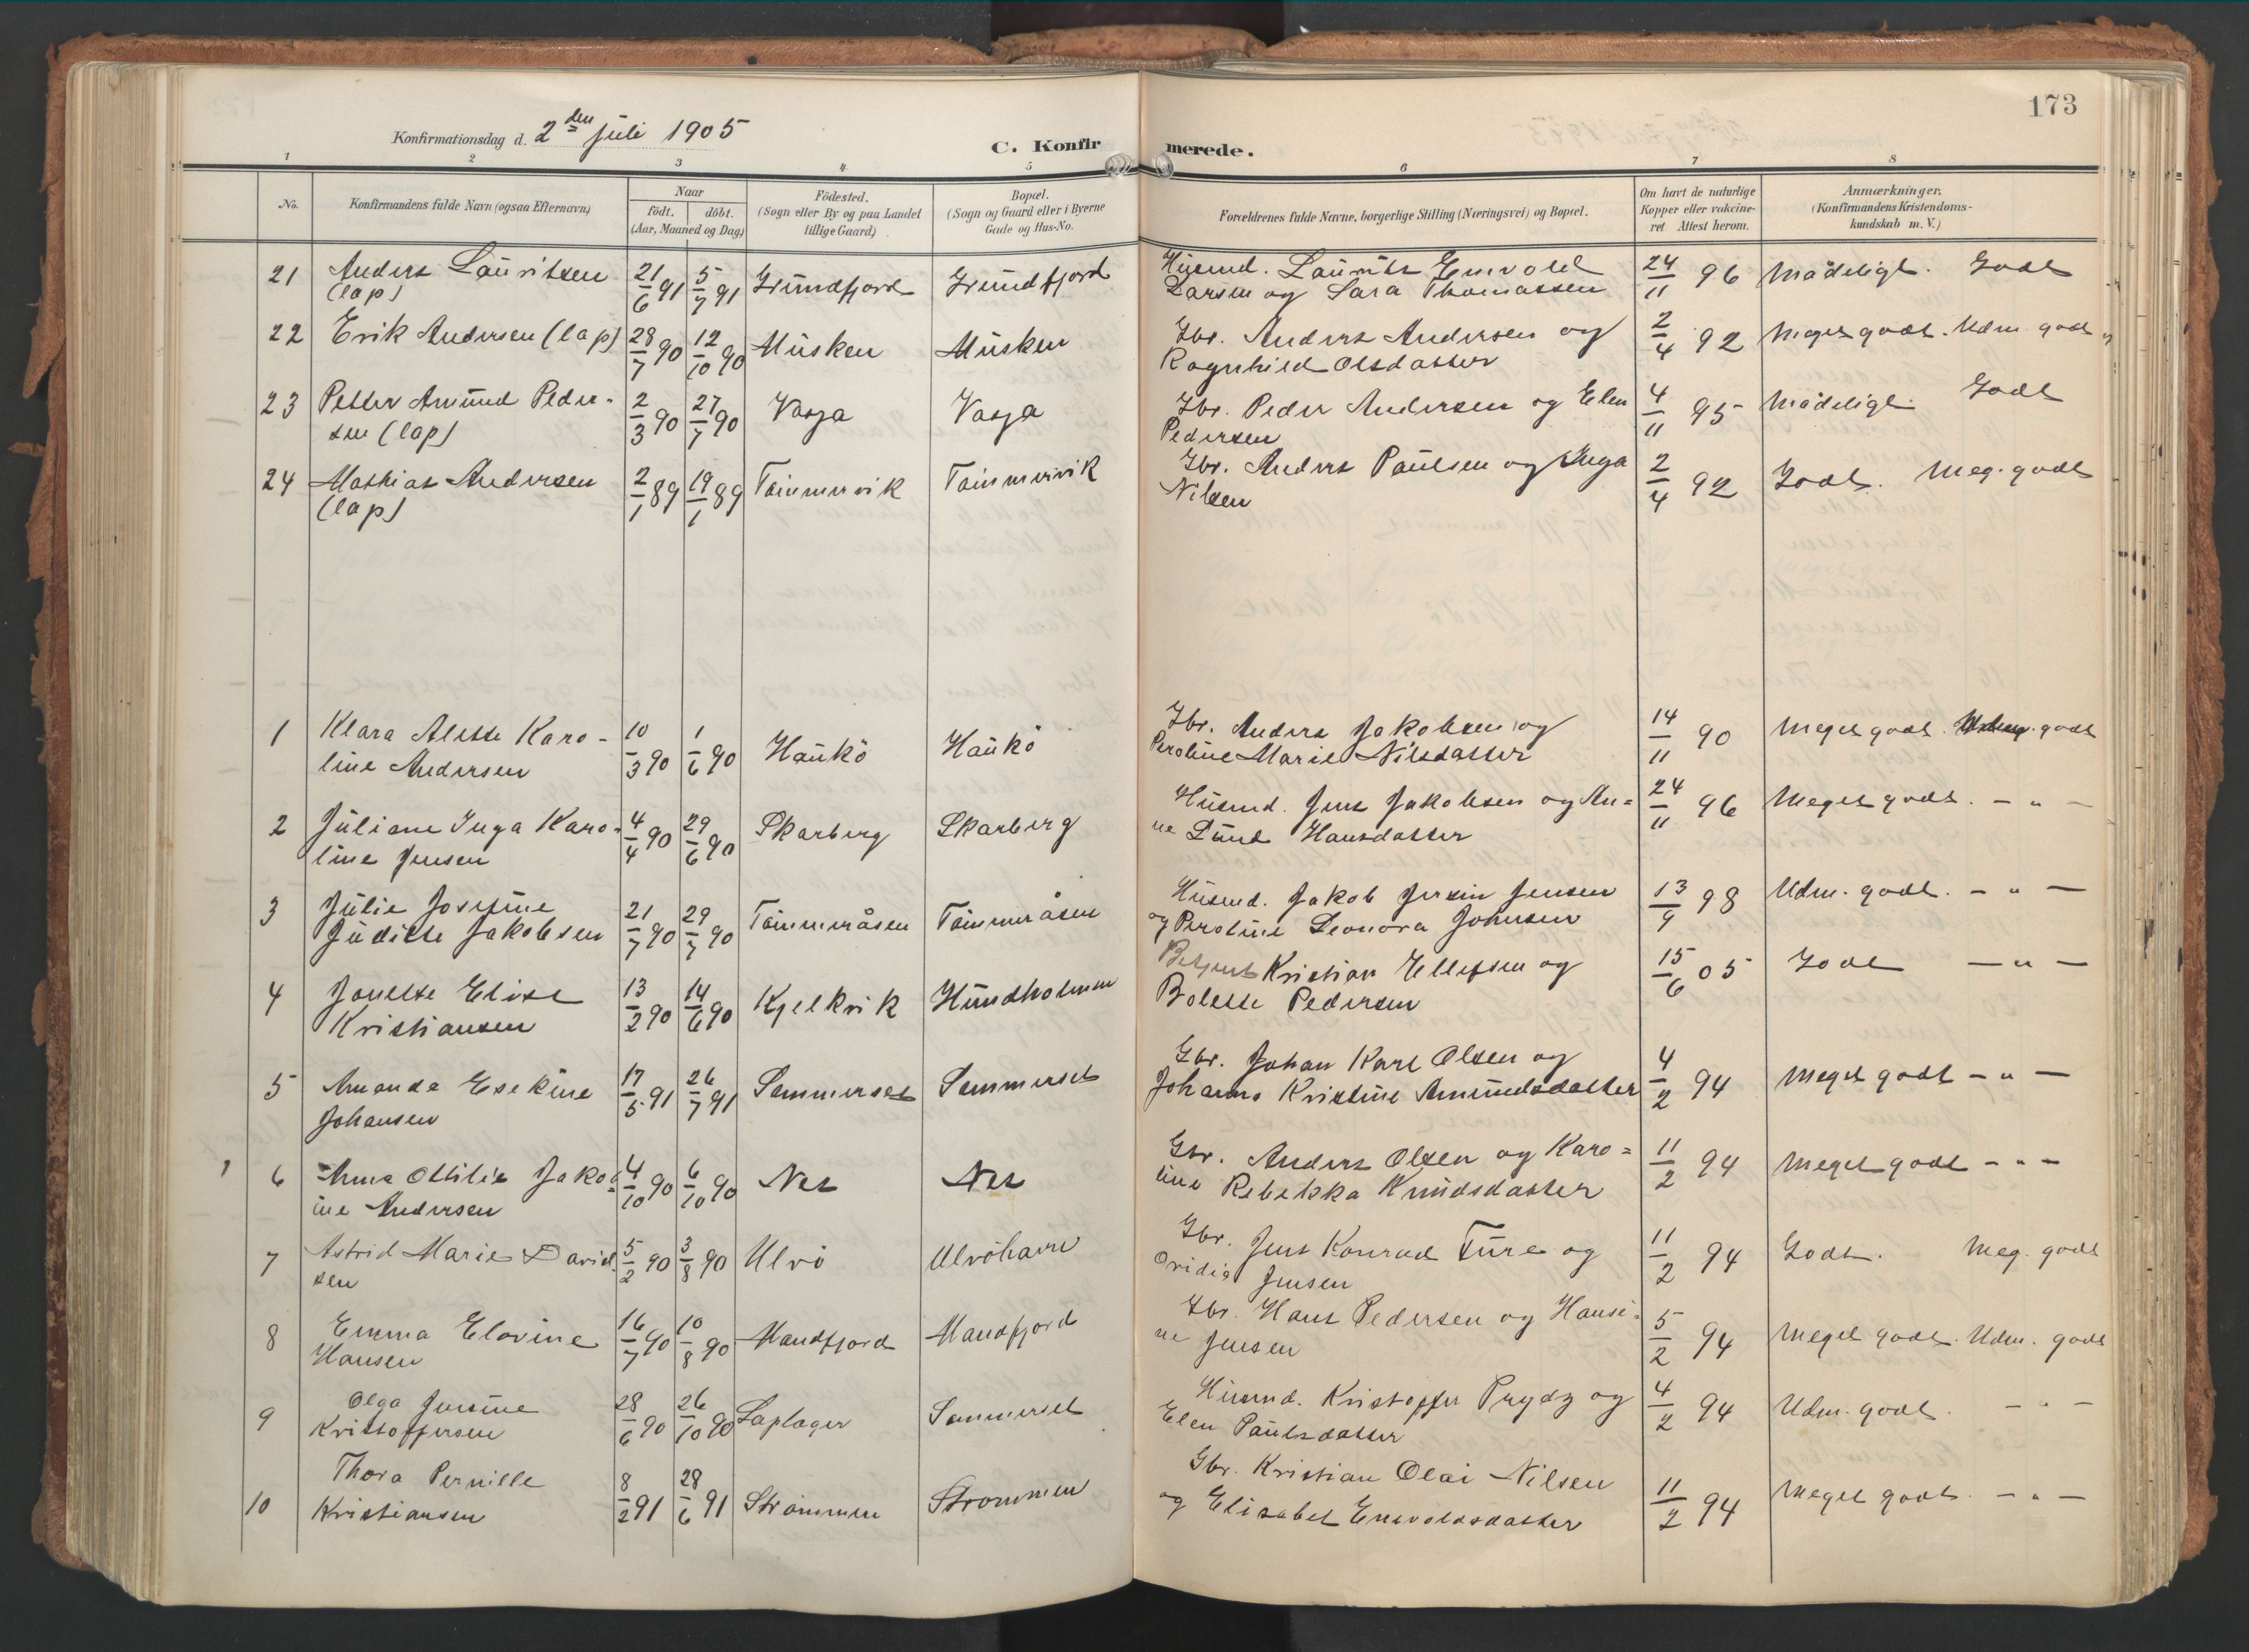 173
Konfirmationsdag d. 2den juli 1905
C. Konfirmerede.
1 2 3 4 5 6 7 8
No.
Konfirmandens fulde Navn (ogsaa Efternavn)
Naar
födt. döbt.
(Aar, Maaned og Dag)
Födested.
(Sogn eller By og paa Landet
tillige Gaard)
Bopæl.
(Sogn og Gaard eller i Byerne
Gade og Hus-No.
Forældrenes fulde Navne, borgerlige Stilling (Næringsvei) og Bopæl.
Om havt de naturlige
Kopper eller vakcine-
ret Attest herom.
Anmærkninger.
(Konfirmandens Kristendoms-
kundskab m. V.)
21 Anders Lauritsen 21/6 91 5/7 91 Grundfjord Grundfjord Husmd. Laurits Enevold 24/11 96 Mådeligt. Godt
(lap) Larsen og Sara Thomassen
22 Erik Andersen (lap) 28/7 90 12/10 90 Musken Musken Gbr. Anders Andersen og 2/4 92 Meget godt. Udm. godt
Ragnhild Olsdatter
23 Petter Amund Peder- 2/3 90 27/7 90 Vasja Vasja Gbr. Peder Andersen og Elen 4/11 95 Mådeligt. Godt
sen (lap) Pedersen
24 Mathias Andersen 2/1 89 19/1 89 Tömmervik Tömmervik Gbr. Anders Paulsen og Inga 2/4 92 Godt. Meg. godt
(lap) Nilsen
1 Klara Alette Karo- 10/3 90 1/6 90 Haukö Haukö Gbr. Anders Jakobsen og 14/11 90 Meget godt. Udm. godt
line Andersen Peroline Marie Nilsdatter
2 Juliane Inga Karo- 4/4 90 29/6 90 Skarberg Skarberg Husmd. Jens Jakobsen og An= 24/11 96 Meget godt. - " -
line Jensen ne Lund Hansdatter
3 Julie Josefine 21/7 90 29/7 90 Tömmeråsen Tömmeråsen Husmd. Jakob Jensen 13/9 98 Udm. godt. - " -
Juditte Jakobsen og Peroline Leonora Johnsen
4 Jonette Elise 13/2 90 14/6 90 Kjelkvik Hundholmen Kristian Ellefsen og 15/6 05 Godt - " -
Kristiansen Bolette Pedersen
5 Amanda Esekine 17/5 91 26/7 91 Sommerset Sommerset Gbr. Johan Karl Olsen og 4/2 94 Meget godt - " -
Johansen Johanna Kristine Amundsdatter
6 Anna Ottilie Jako= 4/10 90 6/10 90 Nes Nes Gbr. Anders Olsen og Karo= 11/2 94 Meget godt - " -
ine Andersen line Rebekka Knudsdatter
7 Astrid Marie David- 5/2 90 3/8 90 Ulvö Ulvöhavn Gbr. Jens Konrad Ture og 11/2 94 Godt. Meg. godt
sen Ovidia Jensen
8 Emma Elovine 16/7 90 10/8 90 Mandfjord Mandfjord Gbr. Hans Pedersen og Hansi= 5/2 94 Meget godt. Udm. godt
Hansen ne Jensen
9 Olga Jensine 28/6 90 26/10 90 Laplager Sommerset Husmd. Kristoffer Prydz og 4/2 94 Udm. godt. - " -
Kristoffersen Elen Paulsdatter
10 Thora Pernille 8/2 91 28/6 91 Strömmen Strömmen Gbr. Kristian Olai Nilsen 11/2 94 Meget godt. - " -
Kristiansen og Elisabet Enevoldsdatter